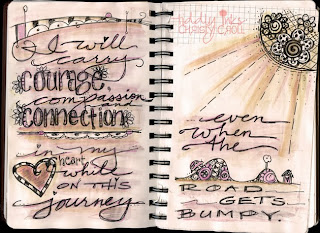 I will
carry
courage,
compassion,
connection
in my
heart
while
ON THIS
journey
even
when
the
ROAD
GETS
BUMPY.